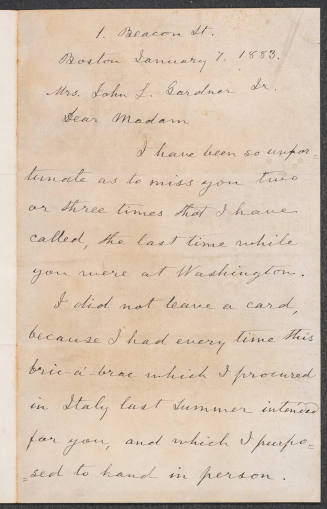 1. Beacon St.
Boston January 7. 1883.
Mrs. John L. Gardner Jr.
Dear Madam
I have been so unfor-
tunate as to miss you two
or three times that I have
called, the last time while
you were at Washington.
I did not leave a card,
because I had every time this
bric-à-brac which I procured
in Italy last summer intended
for you, and which I purpo=
=sed to hand in person.